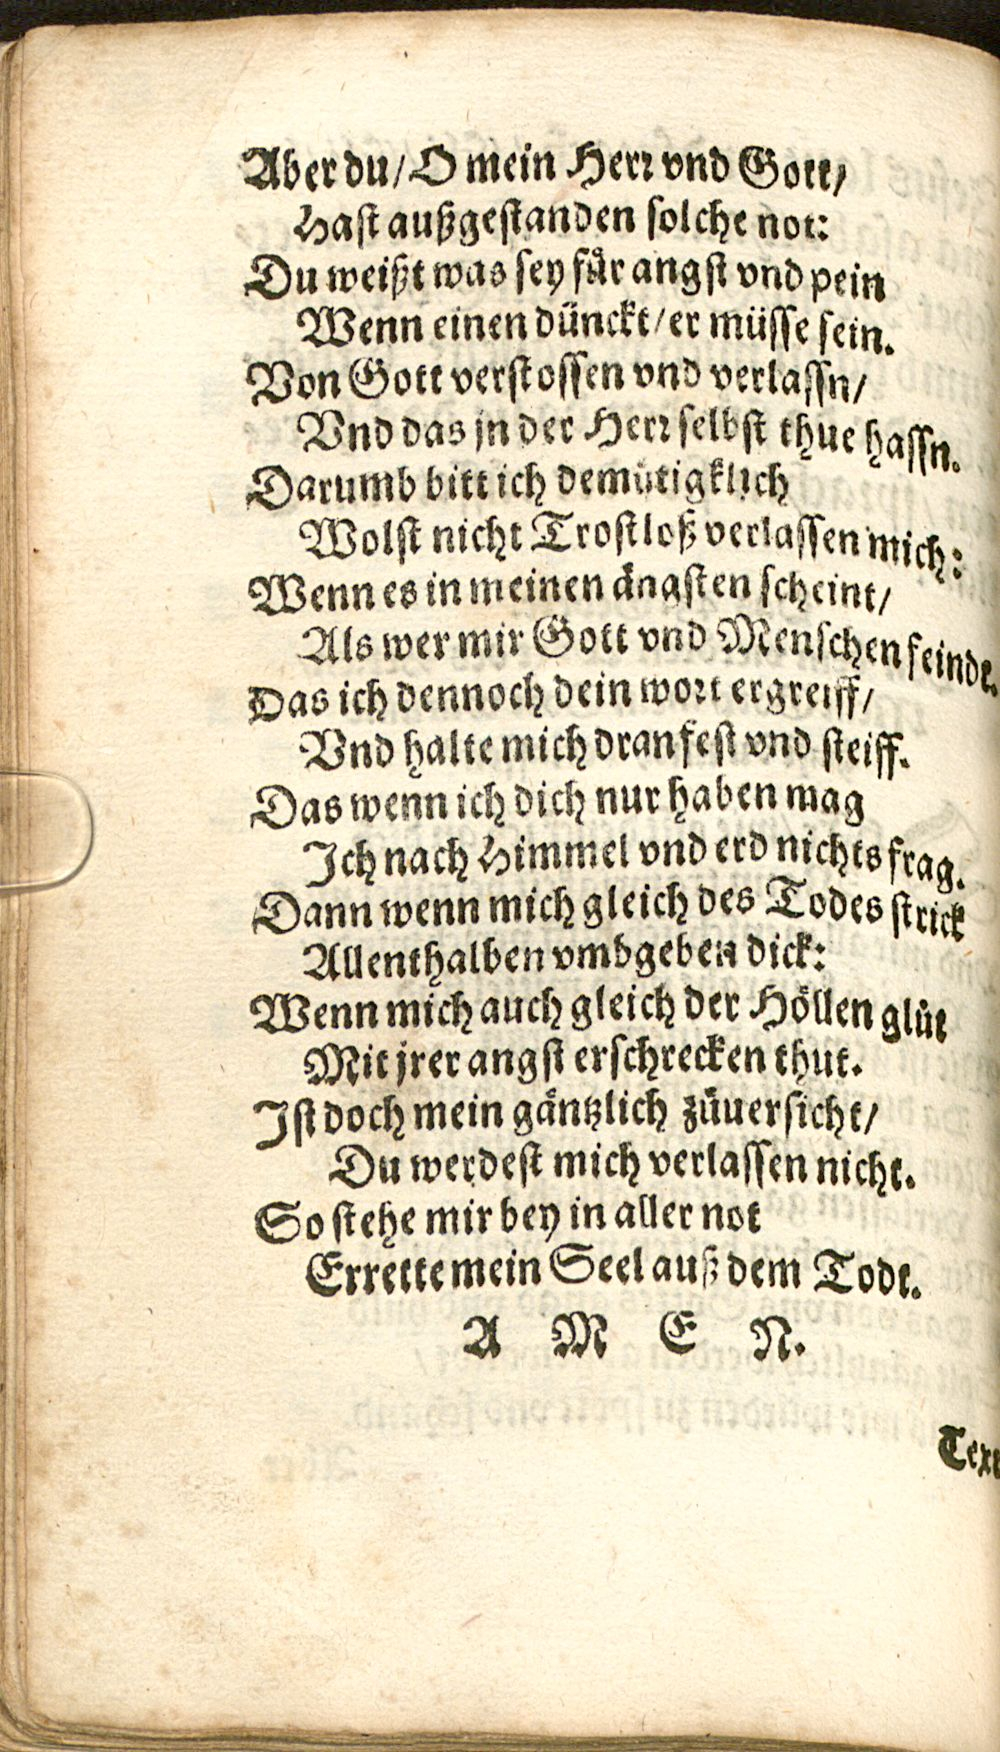 Aber du/ O mein Herr vnd Gott/
Hast außgestanden solche not:
Du weißt was sey für angst vnd pein
Wenn einen dünckt/ er müsse sein.
Von Gott verstossen vnd verlassn/
Vnd das jn der Herr selbst thue hassn.
Darumb bitt ich demütigklich
Wolst nicht Trostloß verlassen mich:
Wenn es in meinen ängsten scheint/
Als wer mir Gott vnd Menschen feindt.
Das ich dennoch dein wort ergreiff/
Vnd halte mich dran fest vnd steiff.
Das wenn ich dich nur haben mag
Ich nach Himmel vnd erd nichts frag.
Dann wenn mich gleich des Todes strick
Allenthalben vmbgeben dick:
Wenn mich auch gleich der Höllen glüt
Mit jrer angst erschrecken thut.
Ist doch mein gäntzlich züuersicht/
Du werdest mich verlassen nicht.
So stehe mir bey in aller not
Errette mein Seel auß dem Todt.
A M E N.
Text